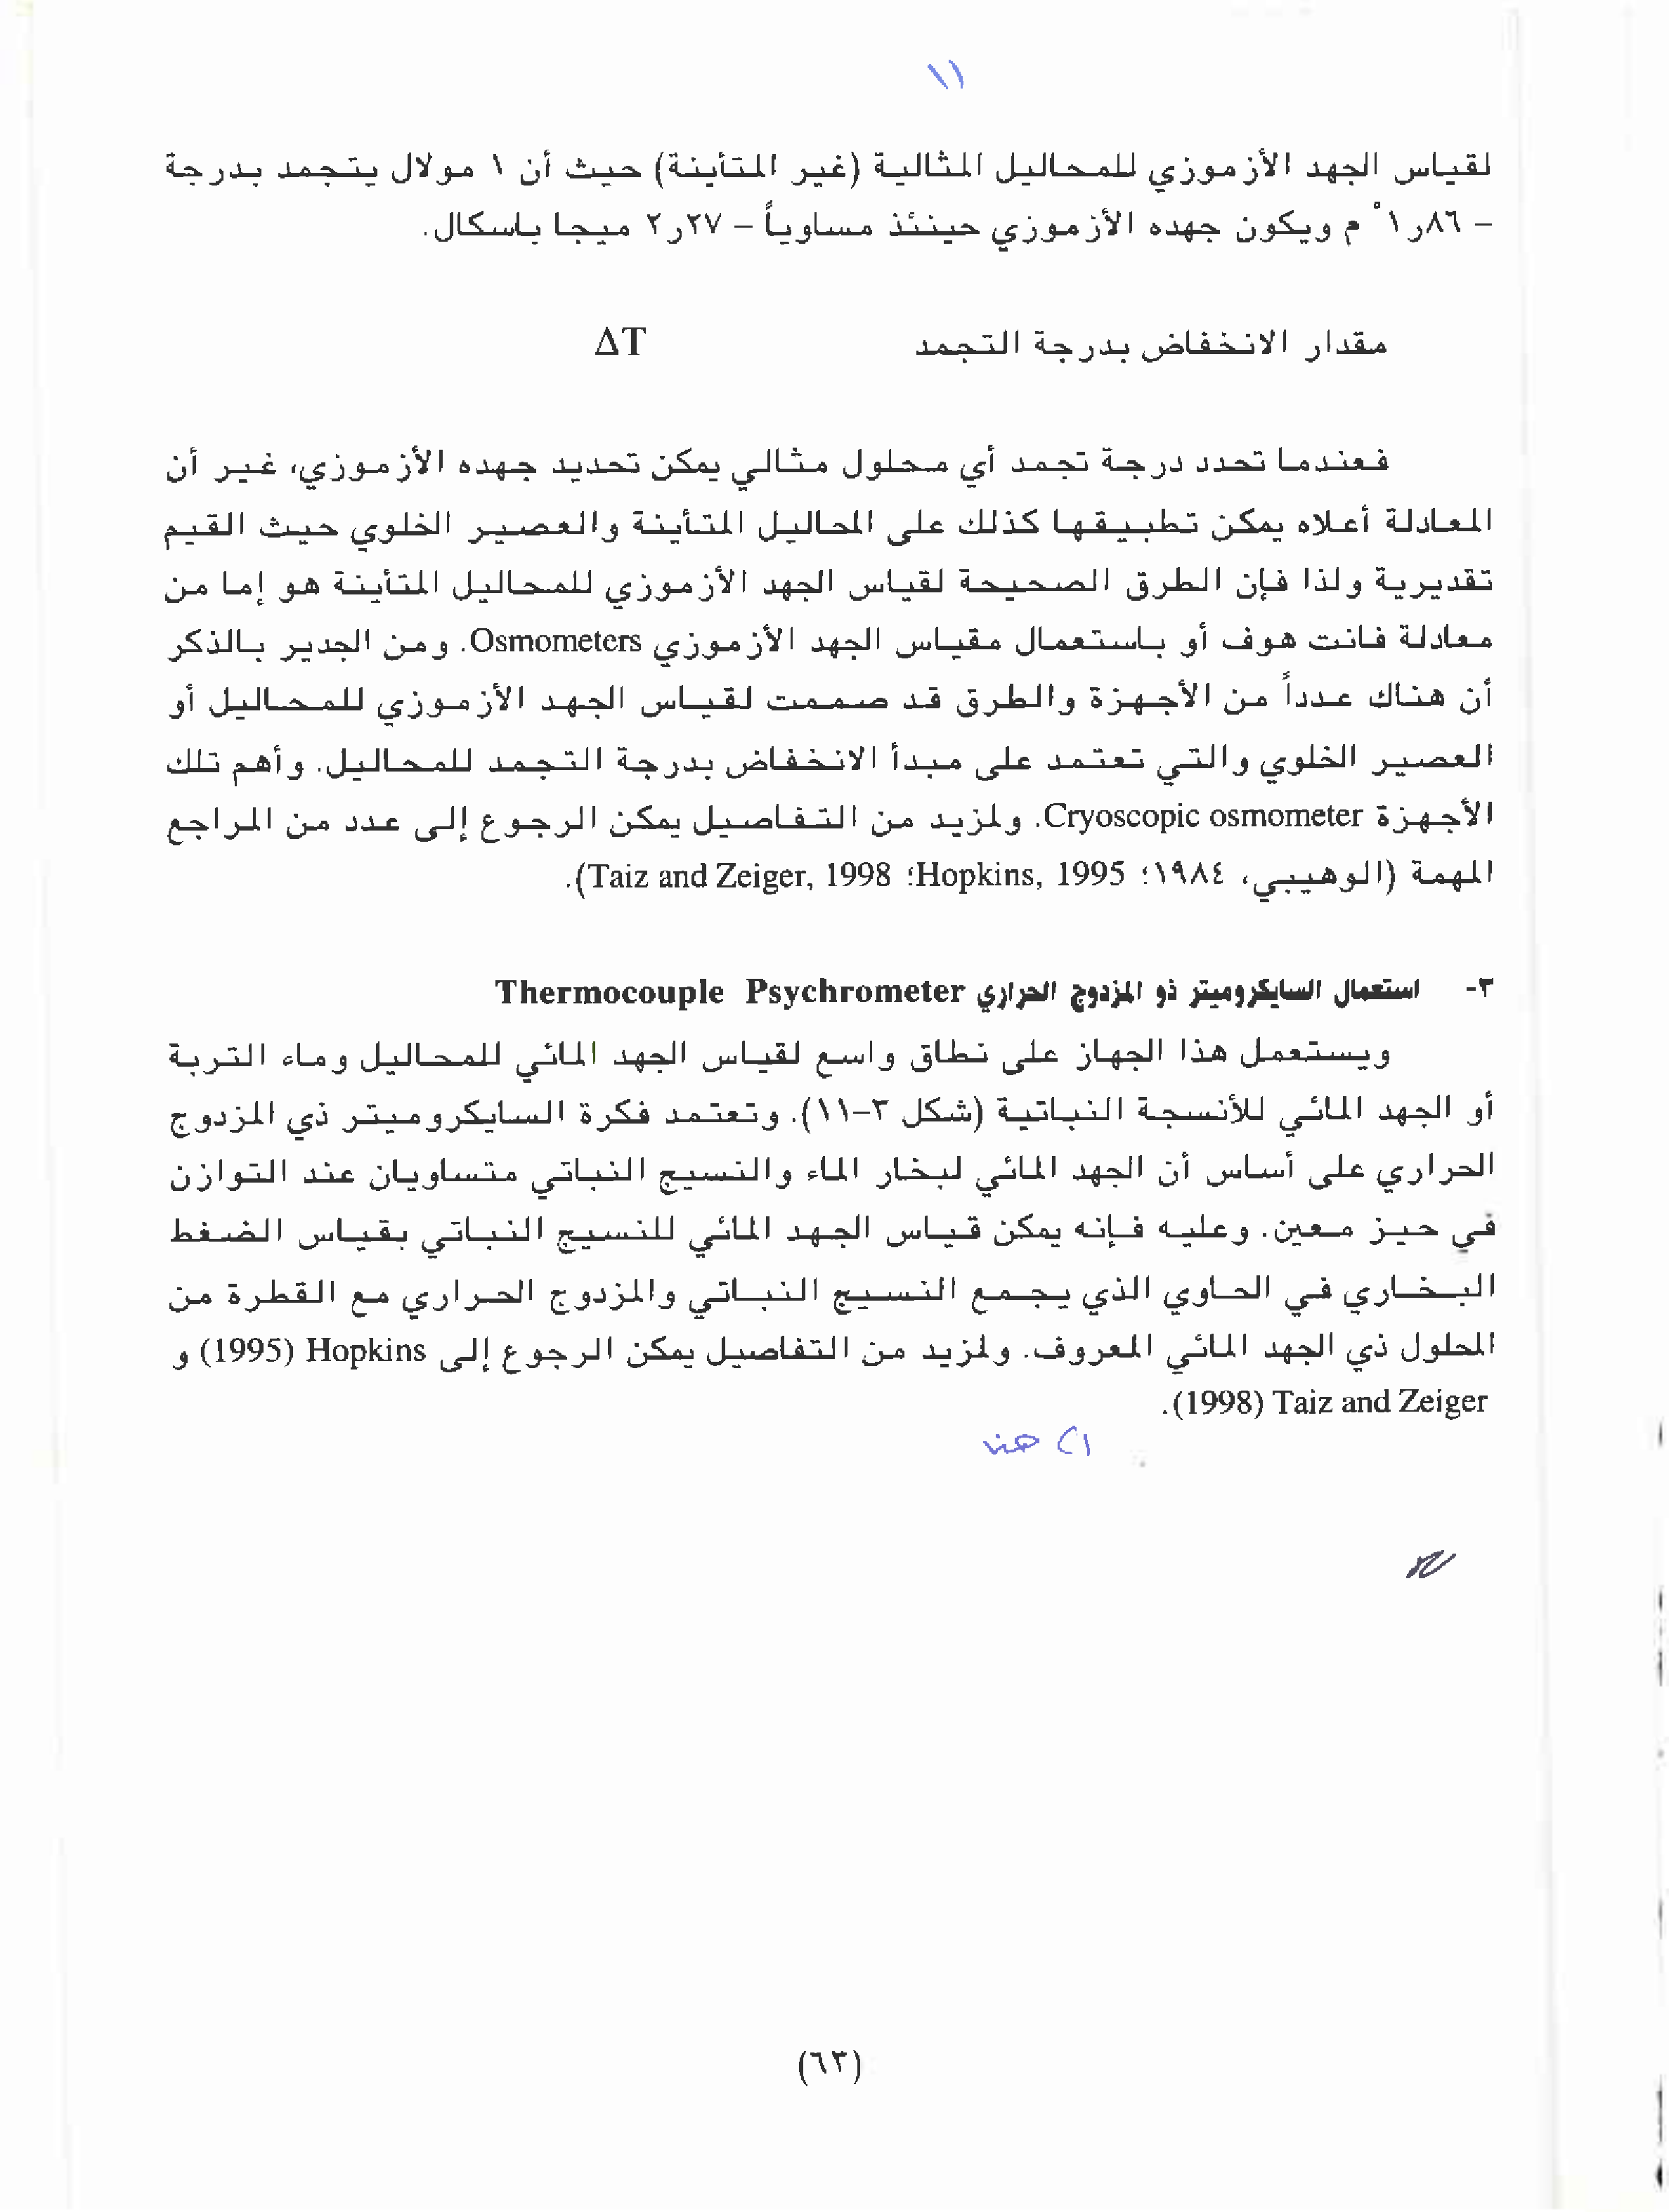 ١١
لقياس الجهد الأزموزي للمحاليل المثالية (غير المتأينة) حيث أن ١ مولال يتجمد بدرجة
– ٨٦ر١ ْ م ويكون جهده الأزموزي حينئذ مساوياً – ٢٧ر٢ ميجا باسكال.
مقدار الانخفاض بدرجة التجمد ΔT
فعندما تحدد درجة تجمد أي محلول مثالي يمكن تحديد جهده الأزموزي، غير أن
المعادلة أعلاه يمكن تطبيقها كذلك على المحاليل المتأينة والعصير الخلوي حيث القيم
تقديرية ولذا فإن الطرق الصحيحة لقياس الجهد الأزموزي للمحاليل المتأينة هو إما من
معادلة فانت هوف أو باستعمال مقياس الجهد الأزموزي Osmometers. ومن الجدير بالذكر
أن هناك عدداً من الأجهزة والطرق قد صممت لقياس الجهد الأزموزي للمحاليل أو
العصير الخلوي والتي تعتمد على مبدأ الانخفاض بدرجة التجمد للمحاليل. وأهم تلك
الأجهزة Cryoscopic osmometer. ولمزيد من التفاصيل يمكن الرجوع إلى عدد من المراجع
المهمة (الوهيبي، ١٩٨٤؛ Hopkins, 1995؛ Taiz and Zeiger, 1998).
٣- استعمال السايكروميتر ذو المزدوج الحراري Thermocouple Psychrometer
ويستعمل هذا الجهاز على نطاق واسع لقياس الجهد المائي للمحاليل وماء التربة
أو الجهد المائي للأنسجة النباتية (شكل ٣-١١). وتعتمد فكرة السايكروميتر ذي المزدوج
الحراري على أساس أن الجهد المائي لبخار الماء والنسيج النباتي متساويان عند التوازن
في حيز معين. وعليه فإنه يمكن قياس الجهد المائي للنسيج النباتي بقياس الضغط
البخاري في الحاوي الذي يجمع النسيج النباتي والمزدوج الحراري مع القطرة من
المحلول ذي الجهد المائي المعروف. ولمزيد من التفاصيل يمكن الرجوع إلى Hopkins (1995) و
Taiz and Zeiger (1998).
(٦٣)